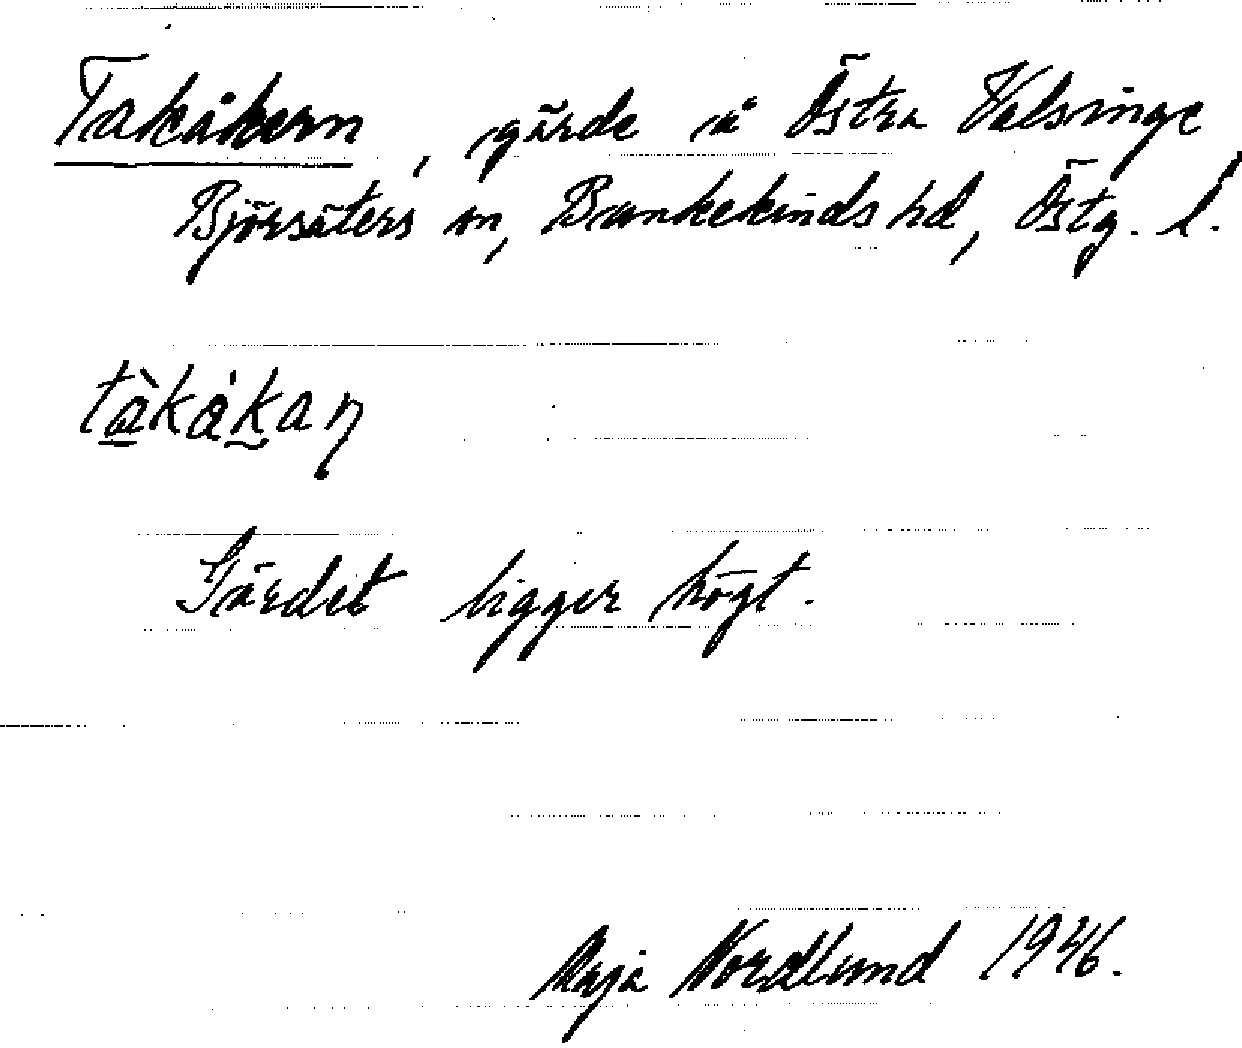 Takåkern, gärde å Östra Valsinge
Björsäters sn, Bankekinds hd, Östg. l.
tàkåkaɳ
Gärdet ligger högt.
Maja Nordlund 1946.